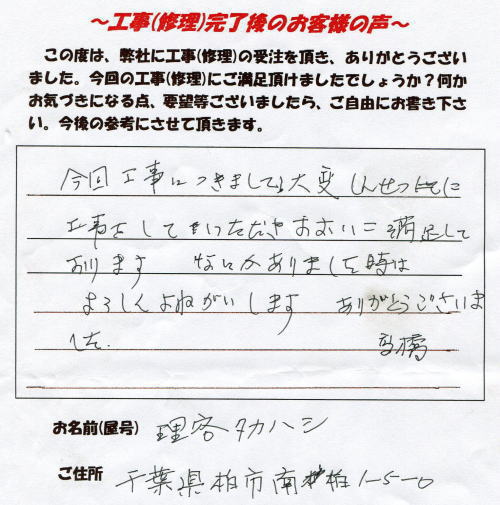 ～工事(修理)完了後のお客様の声～
この度は、弊社に工事(修理)の受注を頂き、ありがとうござい
ました。今回の工事(修理)にご満足頂けましたでしょうか？何か
お気づきになる点、要望等ございましたら、ご自由にお書き下さ
い。今後の参考にさせて頂きます。
今回工事につきまして大変しんせつに
工事をしていただきおおいに満足して
おります なにかありました時は
よろしくおねがいします ありがとうございま
した. 高橋
お名前(屋号) 理容タカハシ
ご住所 千葉県柏市南柏1-5-